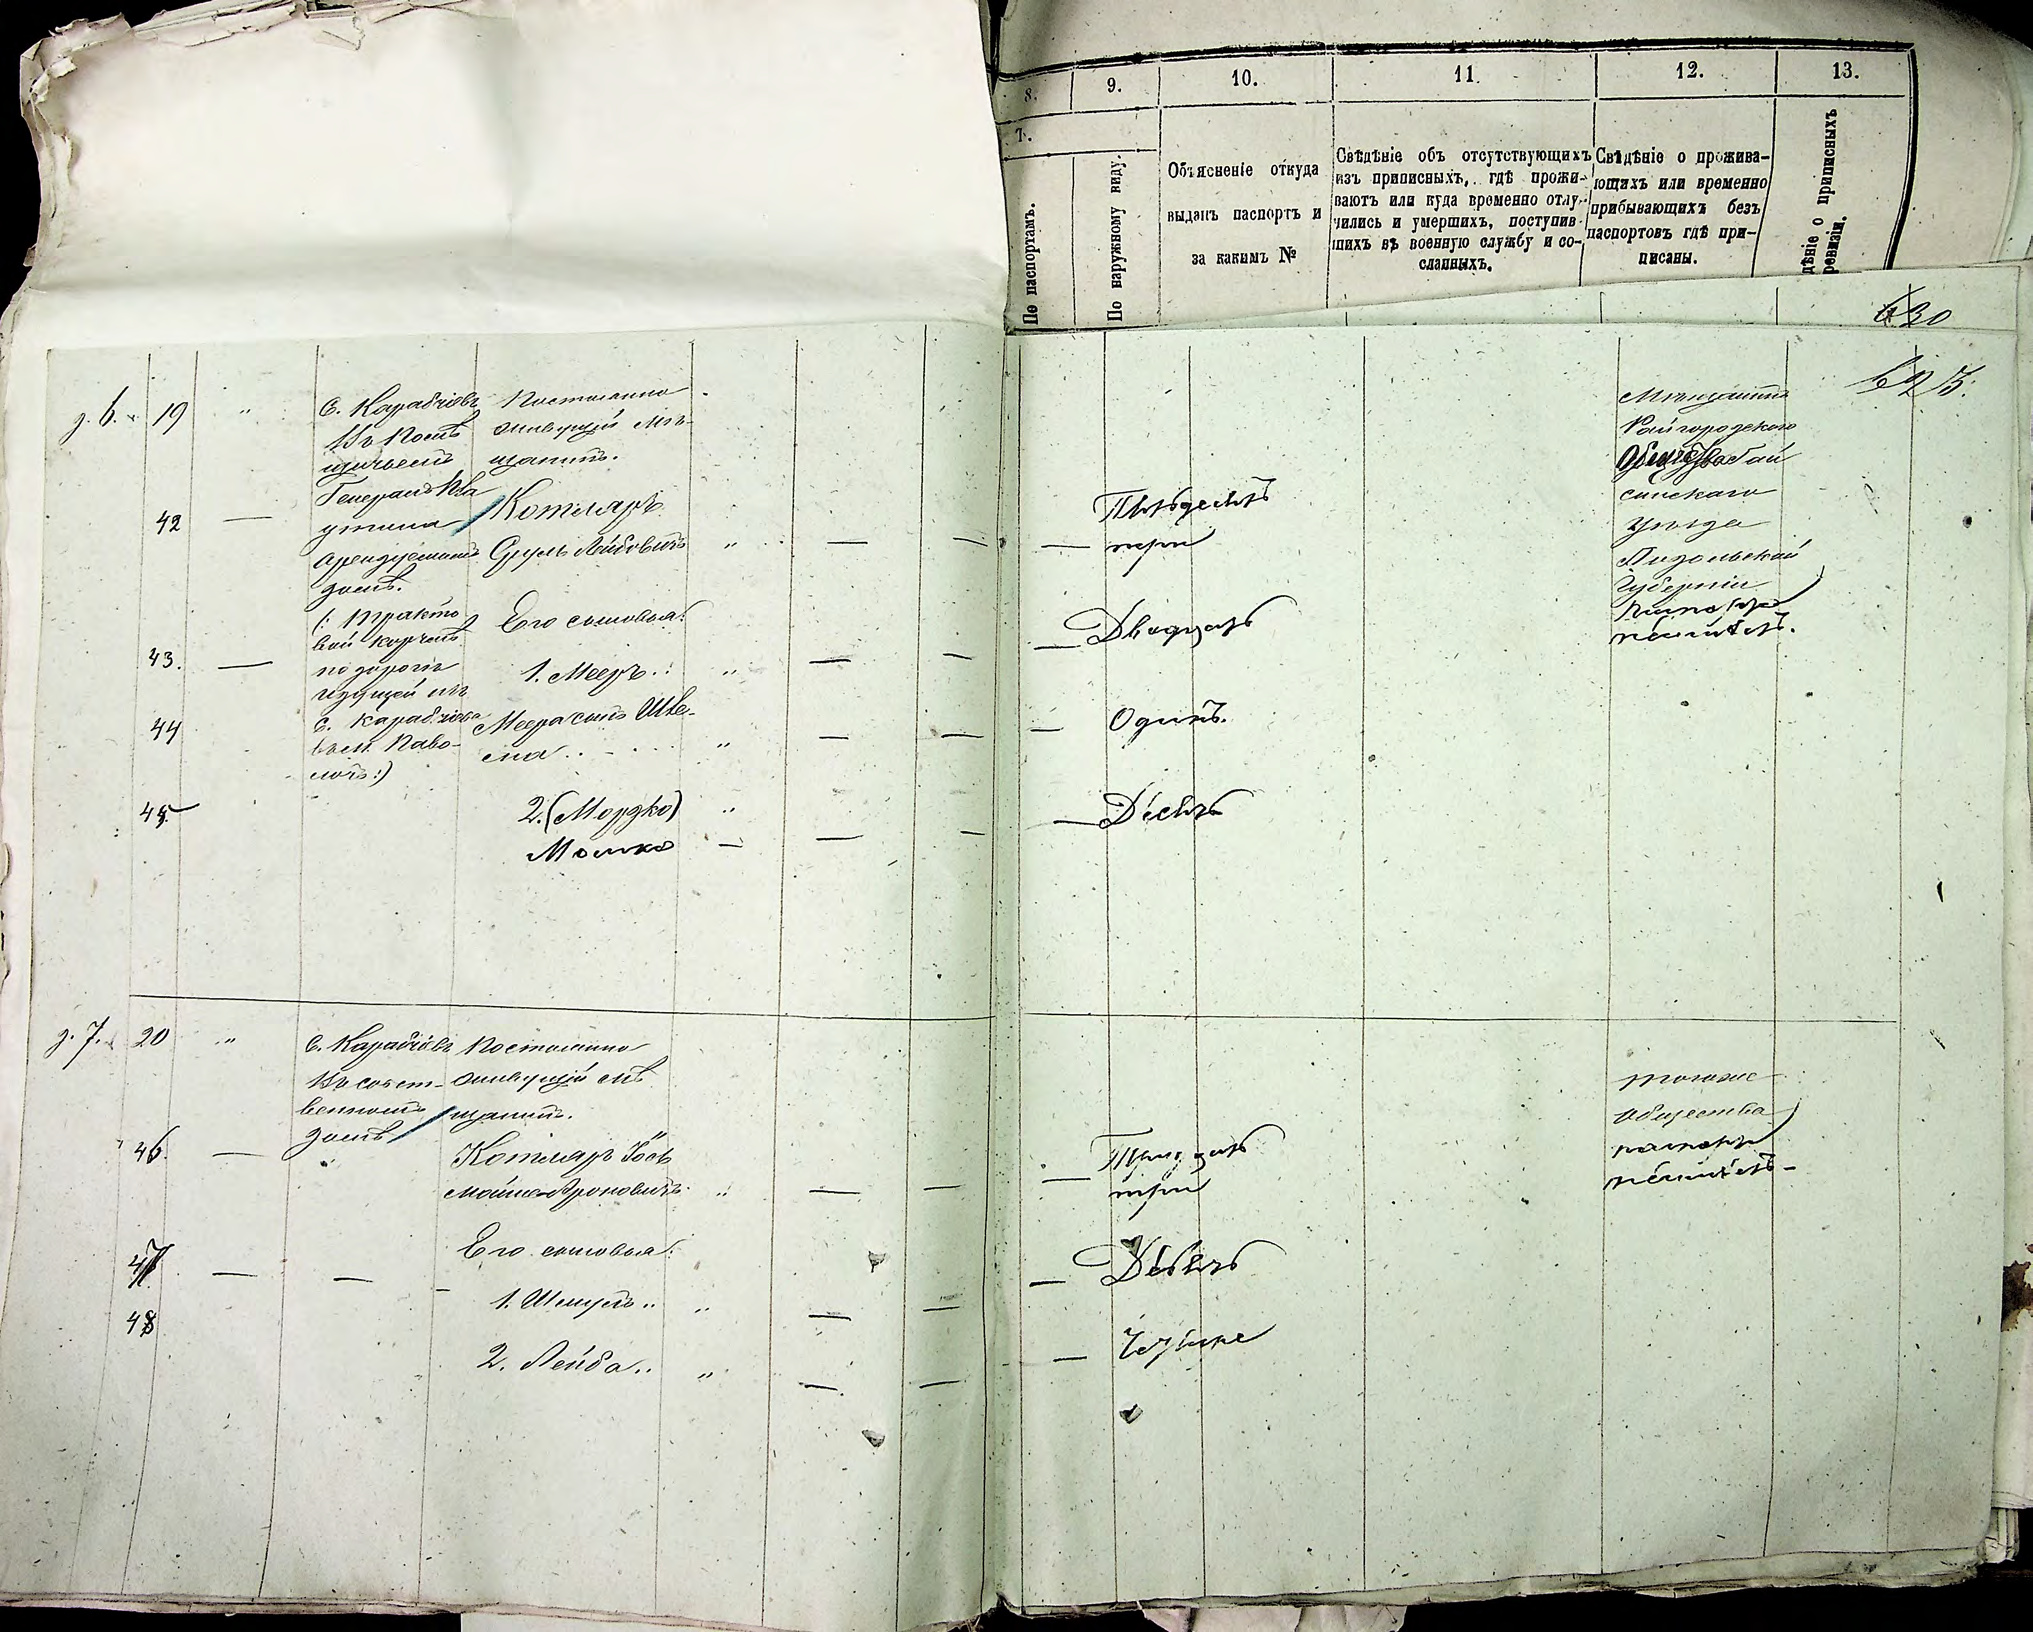 8. 9. 10. 11. 12. 13.
7.
По паспортамъ.
По наружному виду.
Объясненіе откуда
выданъ паспортъ и
за какимъ №
Свѣдѣніе объ отсутствующихъ
изъ приписныхъ, гдѣ прожи-
ваютъ или куда временно отлу-
чились и умершихъ, поступив-
шихъ въ военную службу и со-
сланныхъ.
Свѣдѣніе о прожива-
ющихъ или временно
прибывающихъ безъ
паспортовъ гдѣ при-
писаны.
дѣніе о приписныхъ
ревизіи.
630
623.
д. 6. 19 " с. Карабчіевъ
Въ помѣ
щичьемъ
Генерала
арендуемомъ
домѣ.
(: Тракто
вой корчмѣ
по дорогѣ
идущей изъ
с. Карабчіева
въ м. Паво-
лочь :)
Постоянно
живущій мѣ-
щанинъ.
42 — Котляръ
Сруль Лейбовичъ " — — — Пятьдесятъ
три
Его сыновья:
43. — 1. Мееръ.. " — — — Двадцать
44 Меера сынъ Шле-
ма " — — — Одинъ.
45. 2. (Мордко) "
Мошко — — — — Десять
Мѣщанинъ
Райгородскаго
Общества Гай
синскаго
уѣзда
Подольской
Губерніи
паспорта
неимѣетъ.
д. 7. 20 " с. Карабчіевъ
Въ собст-
венномъ
домѣ
Постоянно
живущій мѣ
щанинъ.
46. — Котляръ Іось
Мойше-Ароновичъ " — — — Тридцать
три
Его сыновья:
47 — — 1. Шмуль.. " — — — Девять
48 2. Лейба.. " — — — Четыре
тогоже
общества
паспорта
неимѣетъ